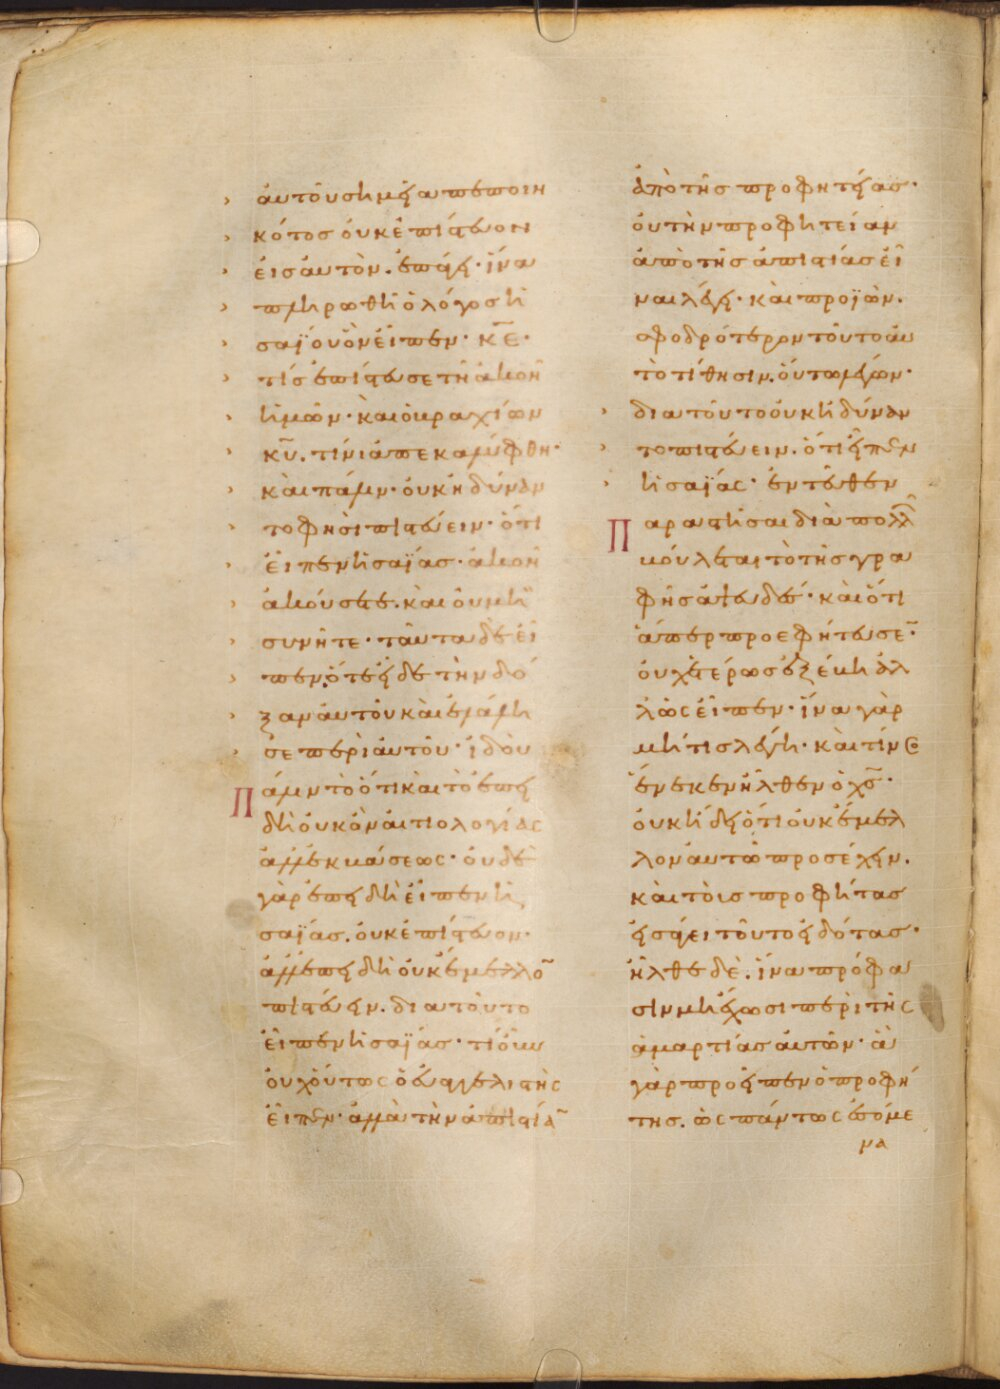 αὐτοῦ σημεῖα πεποιη
κότος οὐκ ἐπίστευον
εἰς αὐτὸν. ἐπάγει· ἵνα
πληρωθῆ ὁ λόγος ἡ
σαΐου ὃν εἶπεν· κ̅ε̅·
τίς ἐπίστευσε τῆ ἀκοῆ
ἡμῶν· καὶ ὁ βραχίων
κ̅υ̅. τίνι ἀπεκαλύφθη·
καὶ πάλιν· οὐκ ἠδύναν
το φησὶ πιστεύειν· ὅτι
εἶπεν ἡσαΐας· ἀκοῆ
ἀκούσετε. καὶ οὐ μὴ
συνῆτε· ταῦτα δὲ εἶ
πεν ὅτε εἶδε τὴν δό
ξαν αὐτοῦ καὶ ἐλάλη
σε περὶ αὐτοῦ· ἰδοὺ
Πάλιν τὸ ὅτι καὶ τὸ ἐπει
δὴ οὐκ ὂν αἰτιολογίας
ἀλλ' ἐκβάσεως· οὐδὲ
γὰρ ἐπειδὴ εἶπεν ἡ
σαΐας. οὐκ ἐπίστευον·
ἀλλ' ἐπειδὴ οὐκ ἔμελλο̅
πιστεύειν. διατοῦτο
εἶπεν ἡσαΐας· τί οὖν
οὐχ οὕτως ὁ εὐαγγελιστὴς
εἶπεν· ἀλλὰ τὴν ἀπιστία̅
ἀπὸ τῆς προφητείας·
οὐ τὴν προφητείαν
ἀπὸ τῆς ἀπιστίας εἶ
ναι λέγει· καὶ προϊὼν.
σφοδρότερον τοῦτο αὐ
τὸ τίθησιν. οὕτω λέγων·
διατοῦτο οὐκ ἠδύναν
το πιστεύειν. ὅτι εἶπεν
ἡσαΐας· ἐντεῦθεν
Παραστῆσαι διὰ πολλῶ̅
βούλεται τὸ τῆς γρα
φῆς ἀψευδὲς· καὶ ὅτι
ἅπερ προεφήτευσε̅·
οὐχ ἑτέρως ἐξέβη ἀλ
λ' ὡς εἶπεν· ἵνα γὰρ
μή τις λέγη· καὶ τίνος
ἕνεκεν ἦλθεν ὁ χ̅ς̅·
οὐκ ἤδει ὅτι οὐκ ἔμελ
λον αὐτῶ προσέχειν.
καὶ τοὺς προφήτας
εἰσάγει τοῦτο εἰδότας·
ἦλθε δὲ. ἵνα πρόφα
σιν μὴ ἔχωσι περὶ τῆς
ἁμαρτίας αὐτῶν· ἃ
γὰρ προεῖπεν ὁ προφή
της. ὡς πάντως ἐσόμε
να